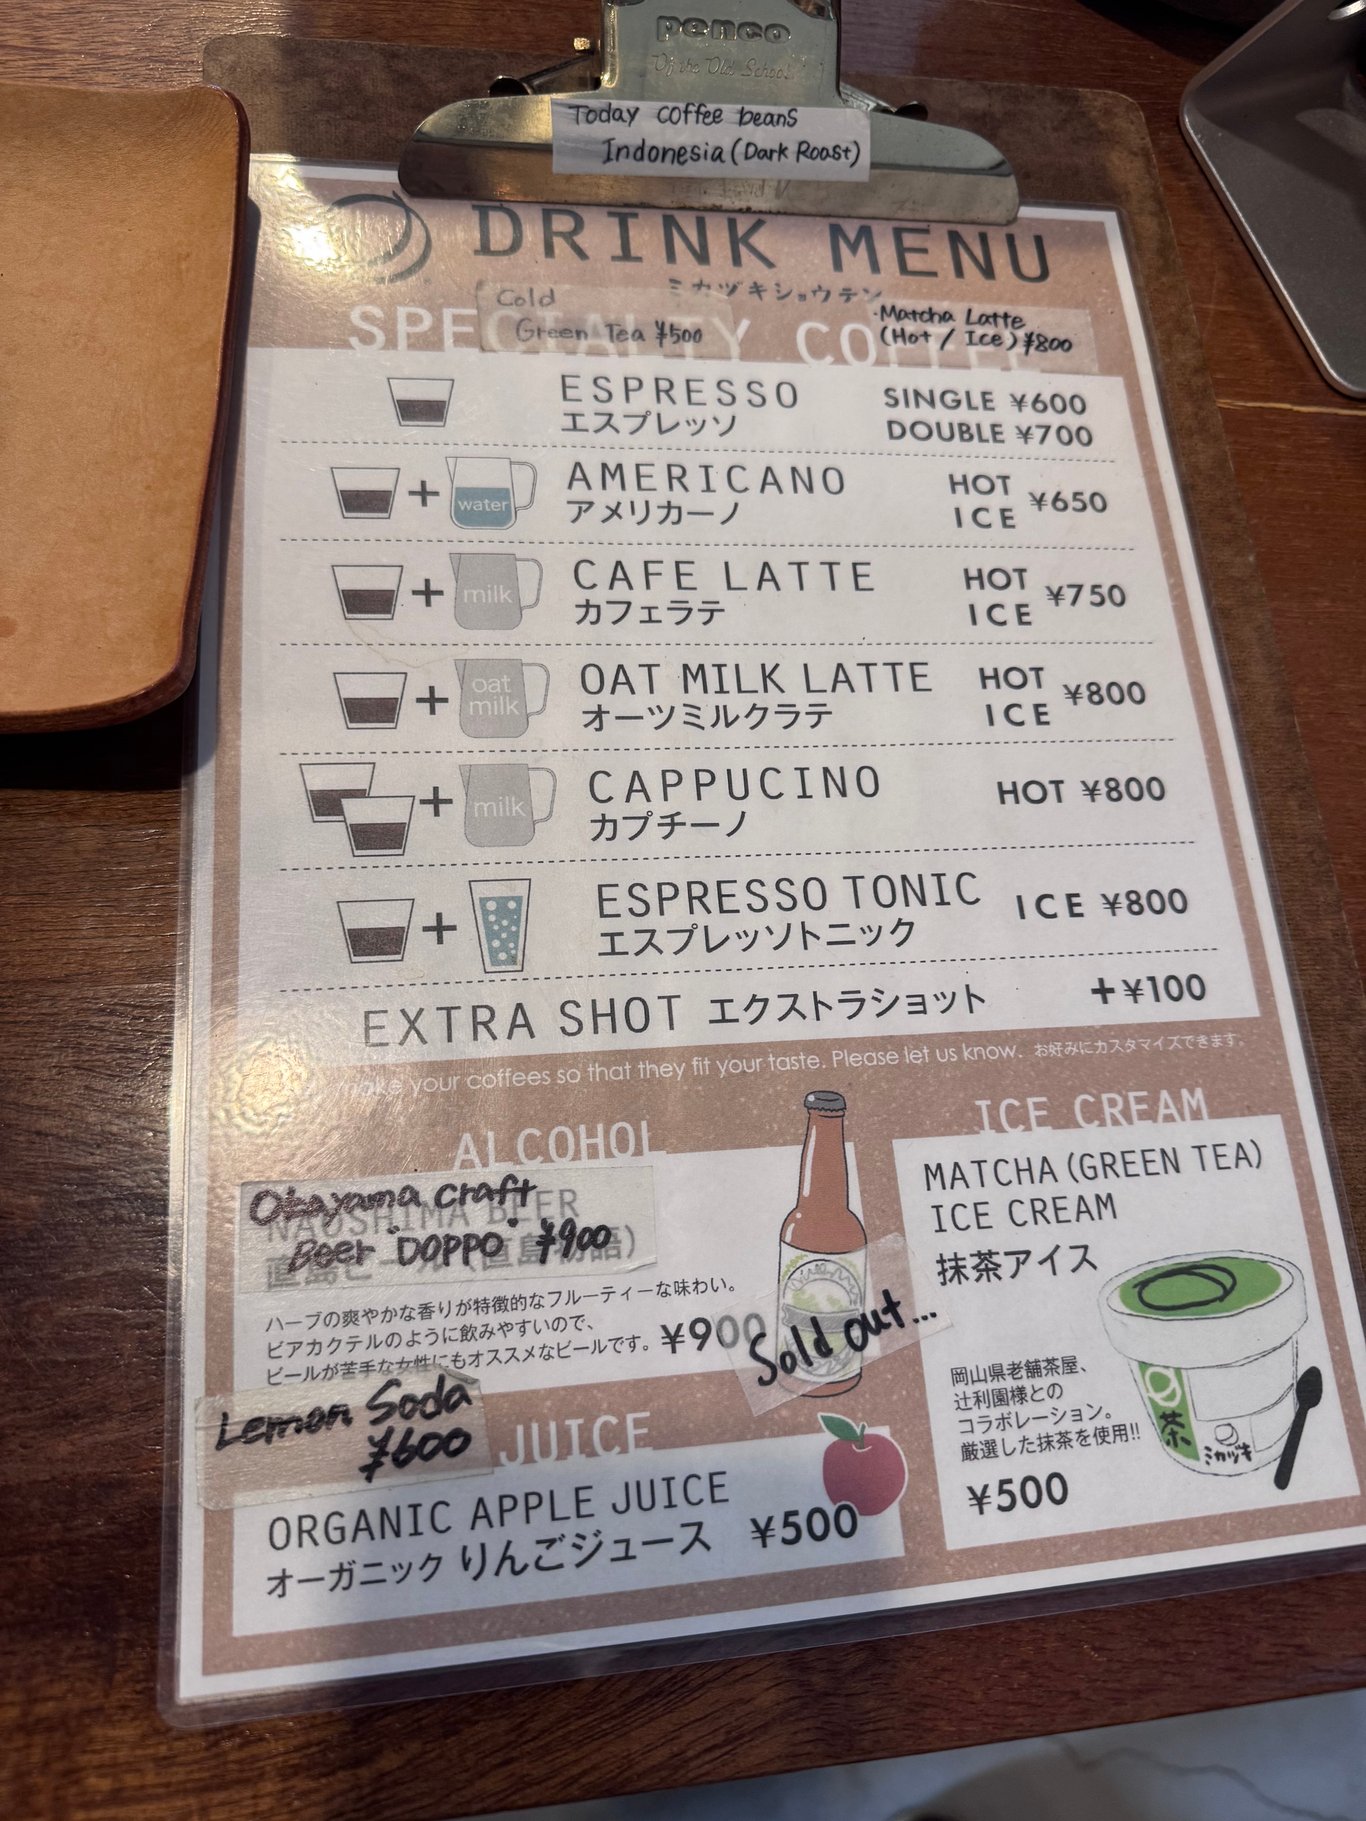 penco
Of the Old School
Today coffee beans
Indonesia (Dark Roast)
DRINK MENU
ミカヅキショウテン
Cold
Green Tea ¥500
・Matcha Latte
(Hot / Ice) ¥800
SPECIALTY COFFEE
ESPRESSO
エスプレッソ
SINGLE ¥600
DOUBLE ¥700
water
AMERICANO
アメリカーノ
HOT
ICE
¥650
milk
CAFE LATTE
カフェラテ
HOT
ICE
¥750
oat
milk
OAT MILK LATTE
オーツミルクラテ
HOT
ICE
¥800
milk
CAPPUCINO
カプチーノ
HOT ¥800
ESPRESSO TONIC
エスプレッソトニック
ICE ¥800
EXTRA SHOT エクストラショット
+¥100
make your coffees so that they fit your taste. Please let us know. お好みにカスタマイズできます。
ALCOHOL
NAOSHIMA BEER
Okayama craft
Beer "DOPPO" ¥900
直島ビール(直島物語)
ハーブの爽やかな香りが特徴的なフルーティーな味わい。
ビアカクテルのように飲みやすいので、
ビールが苦手な女性にもオススメなビールです。 ¥900
Sold out...
Lemon Soda
¥600
JUICE
ORGANIC APPLE JUICE
オーガニック りんごジュース
¥500
ICE CREAM
MATCHA (GREEN TEA)
ICE CREAM
抹茶アイス
岡山県老舗茶屋、
辻利園様との
コラボレーション。
厳選した抹茶を使用!!
¥500
茶
ミカヅキ